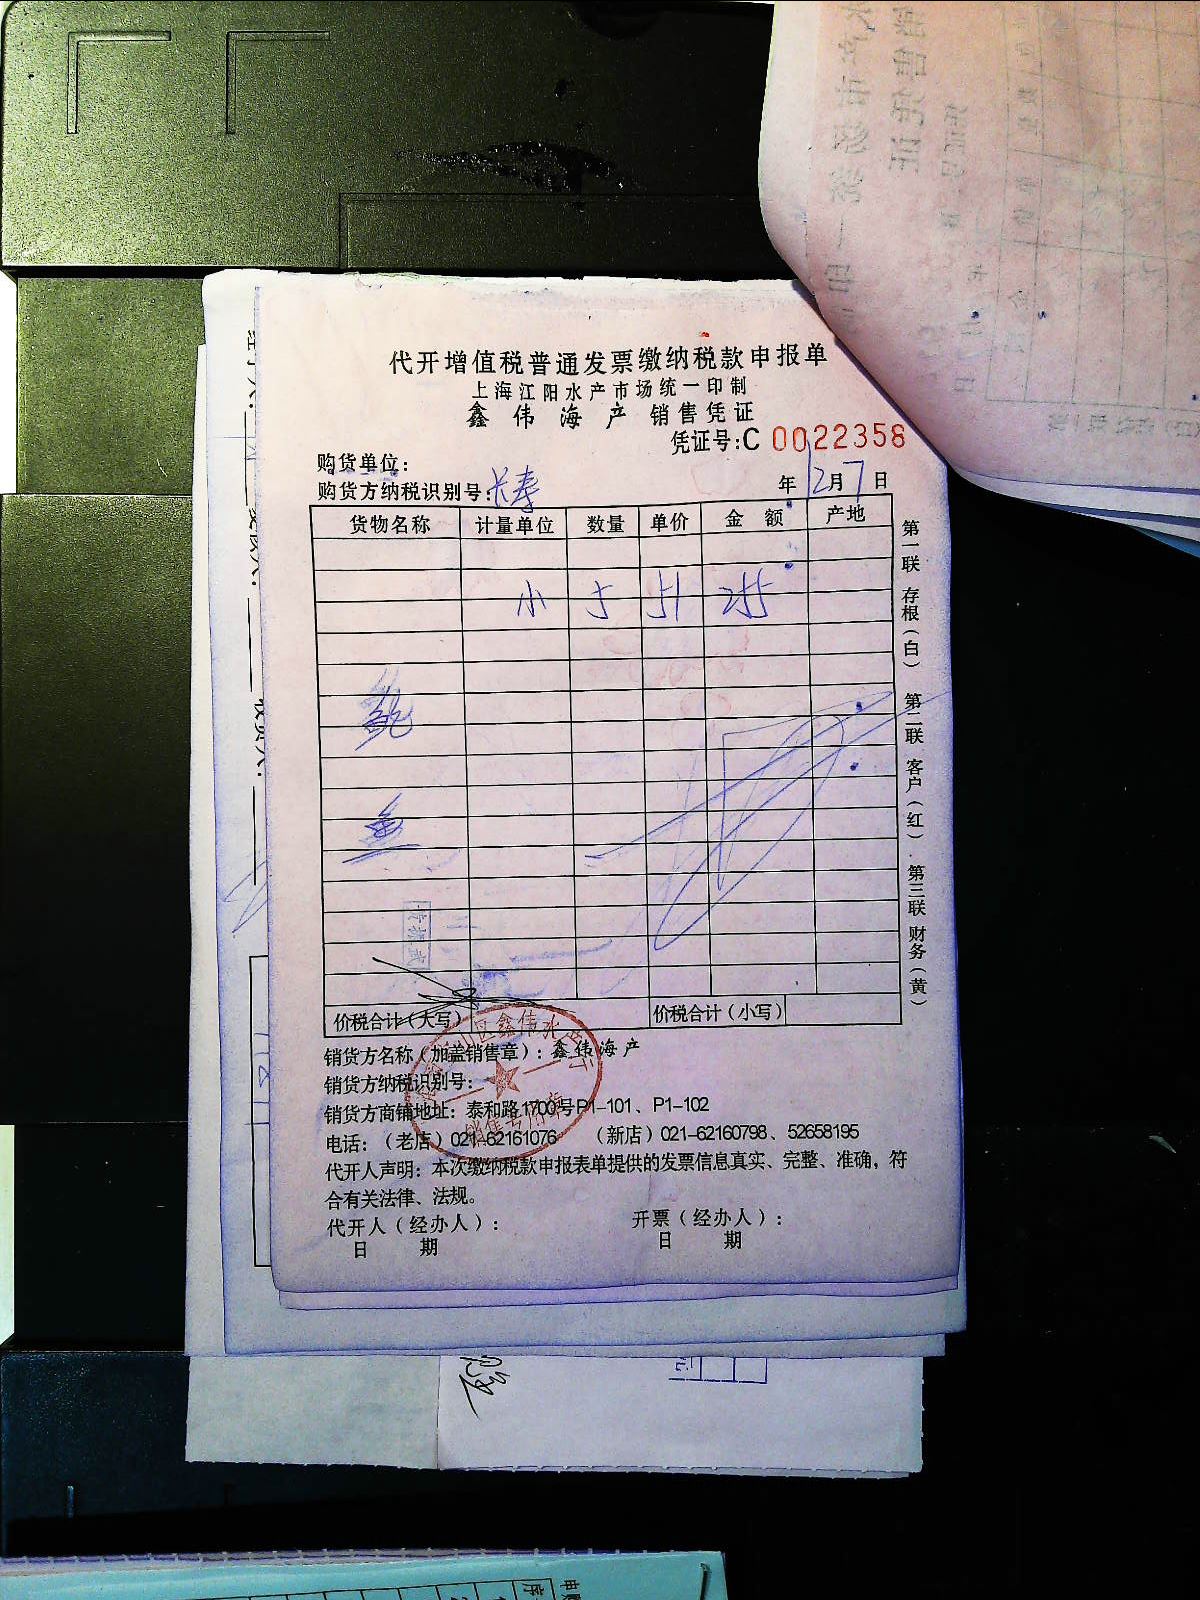 代开增值税普通发票缴纳税款申报单
上海江阳水产市场统一印制
鑫伟海产 销售凭证
凭证号:C 0022358
购货单位:
购货方纳税识别号: 长寿 年 12月7日
货物名称 计量单位 数量 单价 金额 产地
小 5 51 255
鲍
鱼
价税合计(大写) 价税合计(小写)
销货方名称(加盖销售章): 鑫伟海产
销货方纳税识别号:
销货方商铺地址: 泰和路1700号P1-101、P1-102
电话:(老店)021-62161076 (新店)021-62160798、52658195
代开人声明: 本次缴纳税款申报表单提供的发票信息真实、完整、准确,符
合有关法律、法规。
代开人(经办人): 开票(经办人):
日期 日期
第一联 存根(白) 第二联 客户(红) 第三联 财务(黄)
区鑫伟水产行
销售专用章